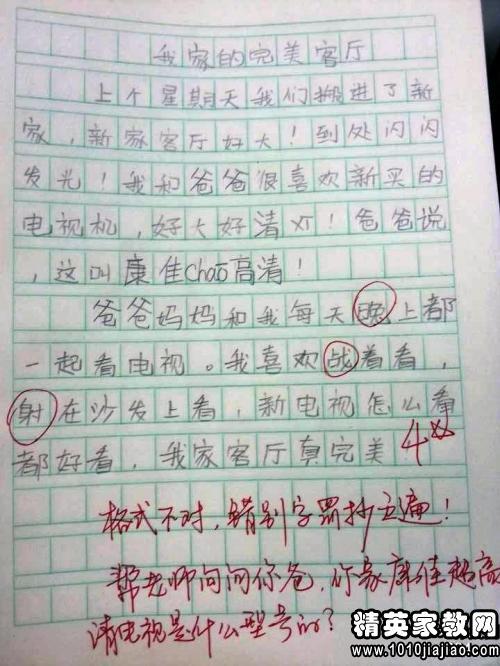 我家的完美客厅
上个星期天我们搬进了新
家，新家客厅好大！到处闪闪
发光！我和爸爸很喜欢新买的
电视机，好大好清灯！爸爸说
，这叫康佳Chāo高清！
爸爸妈妈和我每天晚上都
一起看电视。我喜欢战着看，
射在沙发上看，新电视怎么看
都好看，我家客厅真完美
格式不对，错别字罚抄五遍！
帮老师问问你爸，你家康佳超高
清电视是什么型号的？
精英家教网
www.1010jiajiao.com